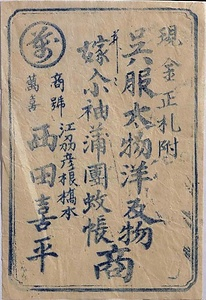 現金正札附
呉服太物洋反物
嫁入小袖蒲團蚊帳
商
萬
商號
萬喜
江州彦根橋本
西田喜平